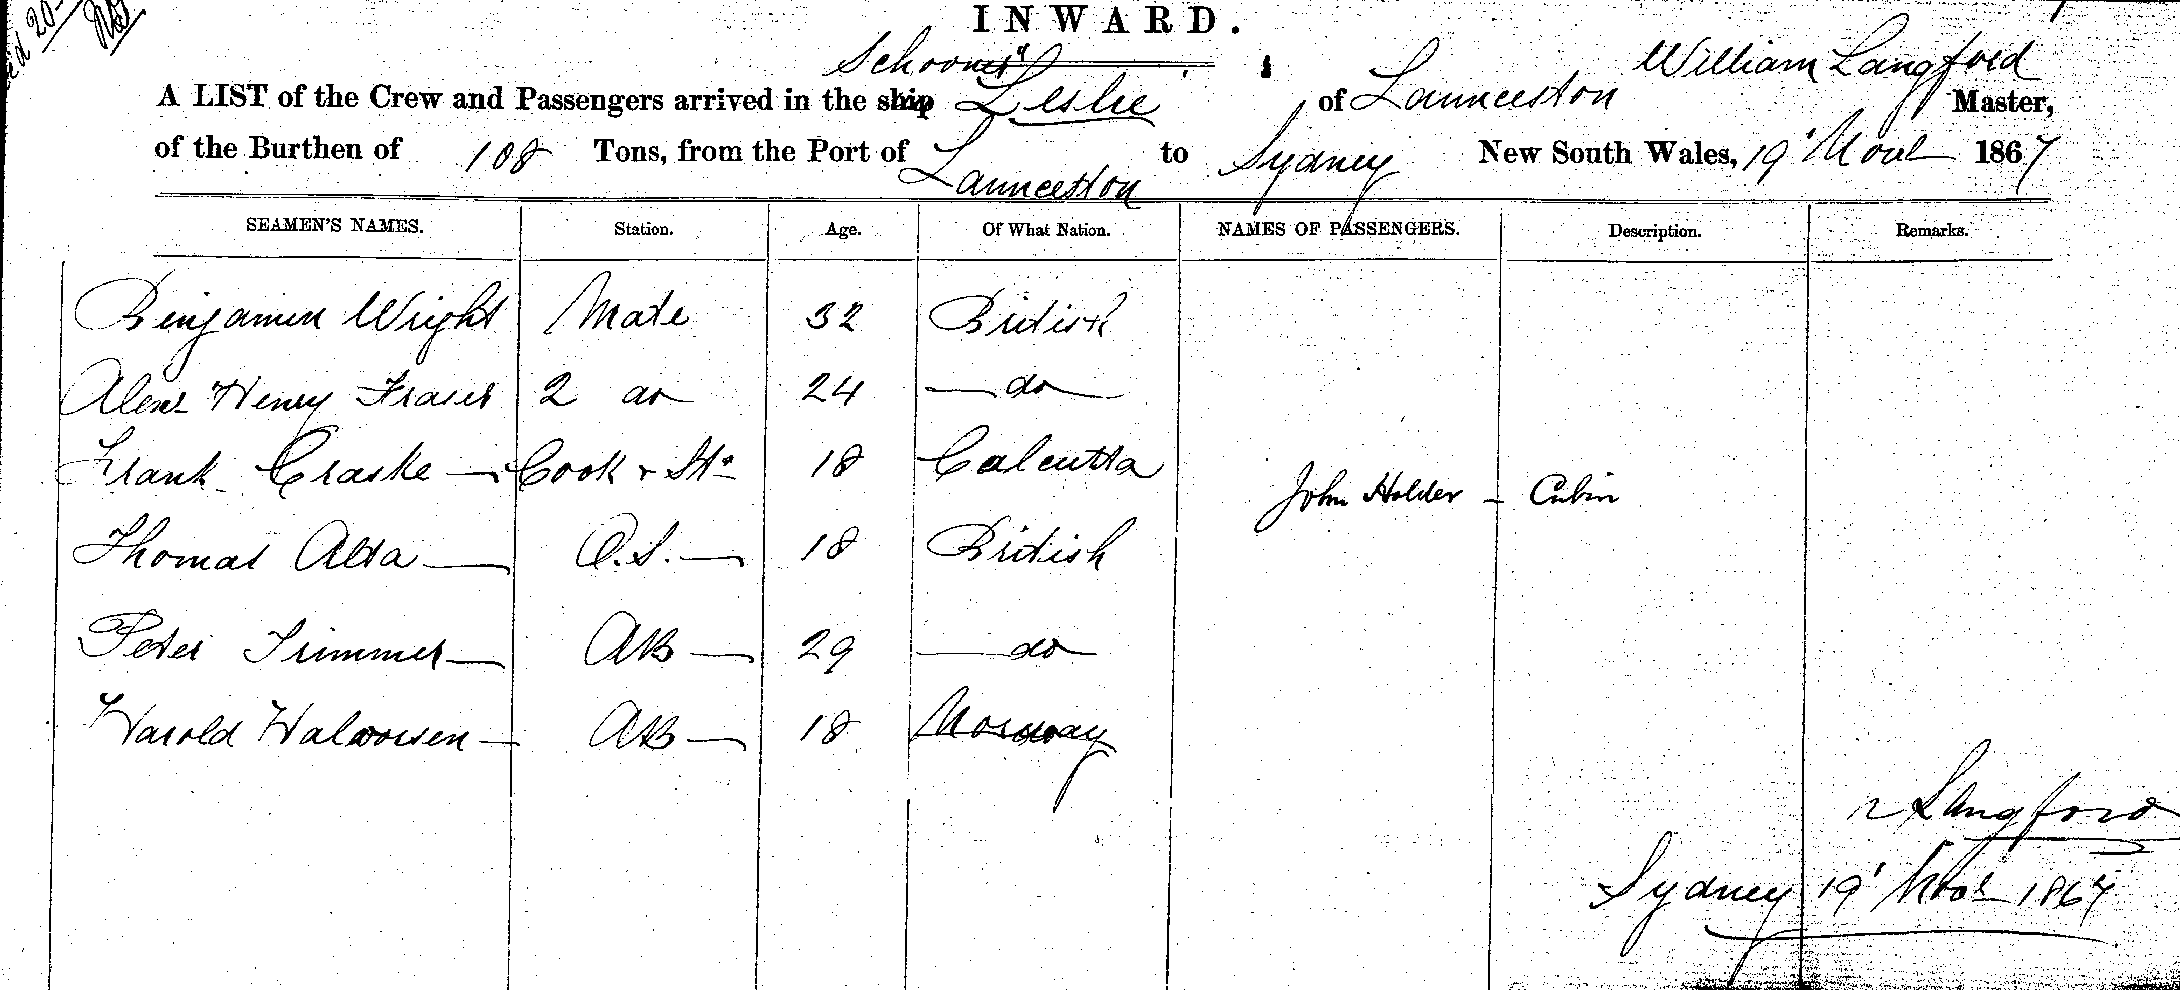 INWARD.
Schooner
William Langford
A LIST of the Crew and Passengers arrived in the ship Leslie of Launceston Master,
of the Burthen of 108 Tons, from the Port of Launceston to Sydney New South Wales, 19 Novr 1867
SEAMEN'S NAMES. Station. Age. Of What Nation. NAMES OF PASSENGERS. Description. Remarks.
Benjamin Wright Mate 32 British
Alexr Henry Fraser 2 do 24 do
Frank Craske Cook & Std 18 Calcutta
John Holder - Cabin
Thomas Alta O.S. 18 British
Peter Trimmer AB 29 do
Harold Halvorsen AB 18 Norway
Langford
Sydney 19 Novr 1867